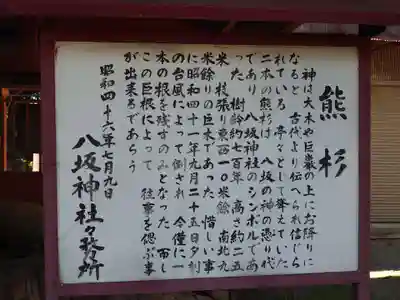 熊杉
神は大木や巨巌の上にお降りに
なると 古代より伝へられ信じら
れている 亭々として聳えていた
二本の熊杉は 八坂の神の憑り代
であり 八坂神社のシンボルであ
った 樹齢約七百年 高さ約二五
米 枝張り東西一〇米餘 南北九
米餘りの巨木であった 惜しい事
に昭和四十一年九月二十五日夕刻
の台風によって倒され 今僅に一
本の根を残すのみとなった 而し
この巨根によって 往事を偲ぶ事
が出来るであらう
昭和四十六年七月九日
八坂神社々務所